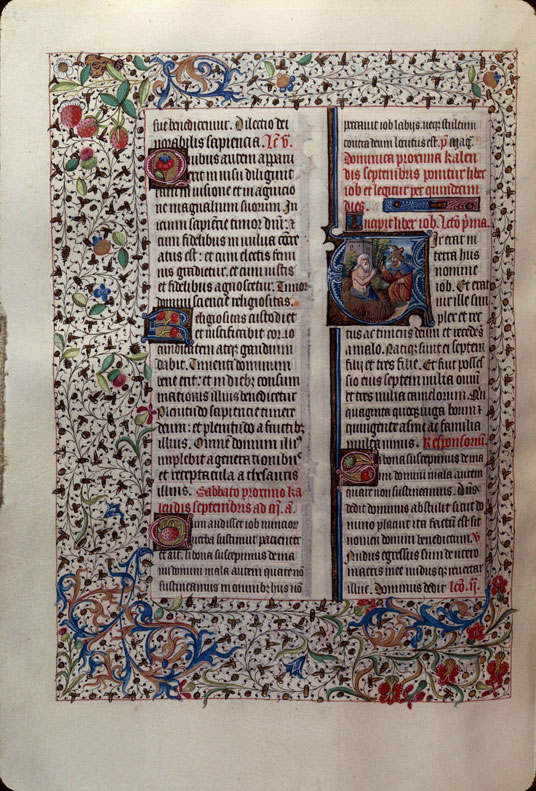 sue benedicentur. Dilectio dei
norabilis sapiencia. Lc̄ v.
Quibus autem apparu
erit in visu diligunt
eam in visione et in agnicio
ne magnalium suorum. In
icium sapiēcie timor dn̄i: ⁊
cum fidelibus in vulua cōcre
atus est: et cum electis femi
nis gradietur. et cum iustis
et fidelibus agnoscetur. Timor
domini sciencie religiositas.
Religiositas custodiet
et iustificabit cor. io
cunditatem atq̄ꝫ gaudium
dabit. Timenti dominum
bene erit: et in dieb⁹ consum
mationis illius benedicetur.
Plenitudo sapiencie timere
deum: et plenitudo a fructib⁹
illius. Omnē domum illi⁹
implebit a generationib⁹
et receptacula a thesauris
illius. Sabbato proximo ka
lendis septembris ad m̄. a.
Cum audisset iob nuncior
verba sustinuit pacienter
et ait. si bona suscepimus de ma
nu domini mala autem quare nō
sustineamus in omnibus his nō
peccauit iob labijs. neqꝫ stultum
contra deum locutus est. p̄
Dominica proxima kalen
dis septembris ponitur liber
iob et legitur per quindecim
dies.
Incipit liber iob. Lcō p̄ma.
Vir erat in
terra hus
nomine
iob. Et erat
vir ille sim
plex et rec
tus ac timens deum et recedēs
a malo. Natiqꝫ sunt ei septem
filij et tres filie. Et fuit posses
sio eius septem milia ouiū
et tria milia camelorum. Qu
inquaginta quoqꝫ iuga boum ⁊
quingente asine ac familia
multa nimis. Responsoriū.
Si bona suscepimus de ma
nu domini mala autem
quare non sustineamus. Dn̄s
dedit dominus abstulit sicut do
mino placuit ita factū est sit
nomen domini benedictum. v̄
Nudus egressus sum de utero
matris mee nudus q̄ꝫ reuertar
illuc. Dominus dedit. Lcō. ij.